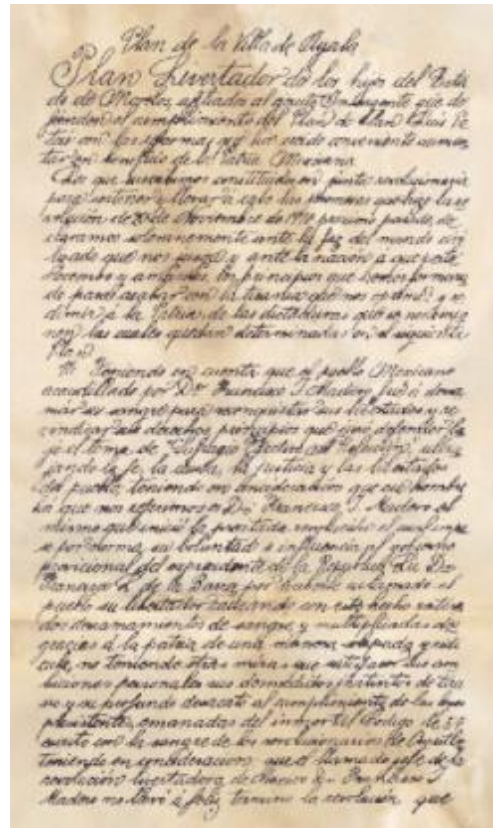 Plan de la Villa de Ayala
Plan Livertador de los hijos del Esta
do de Morelos, afiliados al que de
el cumplimiento del Plan de San Luis
con las reformas que ha creido conveniente aumen
tar en beneficio de la Patria Mexicana
Los que constituidos en junta revolucionaria
para sostener y llevar á cabo las promesas que hizo la re
volución de 20 de Noviembre de 1910 pasado, de
claramos solemnemente ante la faz del mundo civi
lizado que nos juzga y ante la nación á que perte
necemos y amamos, los principios que hemos formulado
para acabar con la tiranía que nos oprime y re
dimir á la Patria de las dictaduras que se nos
las cuales quedan determinadas en el siguiente
Plan
1º Teniendo en cuenta que el pueblo Mexicano
acaudillado por Dn Francisco I. Madero, fué á derra
mar su sangre para reconquistar sus libertades y re
vindicar sus derechos
el lema de "Sufragio Efectivo no Reelección", ultra
jando la fe, la causa, la justicia y las libertades
del pueblo, teniendo en consideración que ese hombre
á que nos referimos es Dn Francisco I. Madero, el
mismo que inició la revolución el cual
por norma su voluntad é influencia al gobierno
provicional del expresidente de la República Lic. Dn
Francisco L. de la Barra, por haberle aclamado el
pueblo su libertador, con este hecho
derramamientos de sangre, y multiplicadas des
gracias á la patria de una manera y ridi
cula, no teniendo otras miras que satisfacer sus am
biciones personales, sus instintos de tira
no y su profundo desacato al cumplimiento de las leyes
emanadas del inmortal Código de 57
escrito con la sangre de los revolucionarios de Ayutla
teniendo en consideración que el llamado jefe de la
revolución libertadora de Mexico Dn Francisco I
Madero no llevó á feliz termino la revolución que